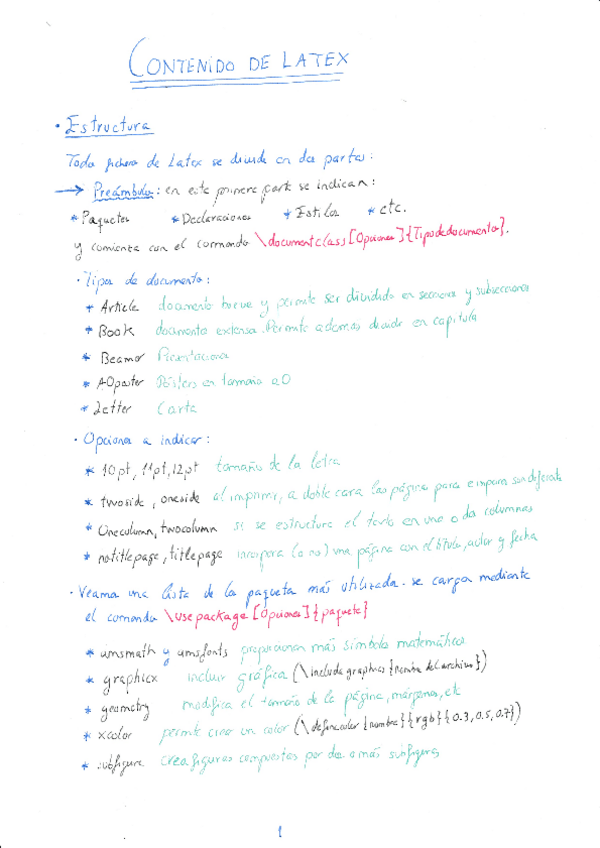 CONTENIDO DE LATEX
• Estructura
Todo fichero de Latex se divide en dos partes:
→ Preámbulo: en esta primera parte se indican:
* Paquetes * Declaraciones * Estilos * etc.
y comienza con el comando \documentclass[Opciones]{Tipo de documento}.
• Tipos de documento:
* Article documento breve y permite ser dividido en secciones y subsecciones
* Book documento extenso. Permite además dividir en capítulos
* Beamer Presentaciones
* A0poster Pósters en tamaño a0
* Letter Carta
• Opciones a indicar:
* 10pt, 11pt, 12pt tamaño de la letra
* twoside, oneside al imprimir, a doble cara las página para e impara son diferente
* Onecolumn, twocolumn si se estructura el texto en una o dos columnas
* notitlepage, titlepage incorpora (o no) una página con el título, autor y fecha
• Veamos una lista de los paquetes más utilizados. se cargan mediante
el comando \usepackage[Opciones]{paquete}
* amsmath y amsfonts proporcionan más símbolos matemáticos
* graphicx incluir gráficos (\includegraphics{nombre del archivo})
* geometry modifica el tamaño de la página, márgenes, etc
* xcolor permite crear un color (\definecolor{nombre}{rgb}{0.3,0.5,0.7})
* subfigure crea figuras compuestas por dos o más subfiguras
1